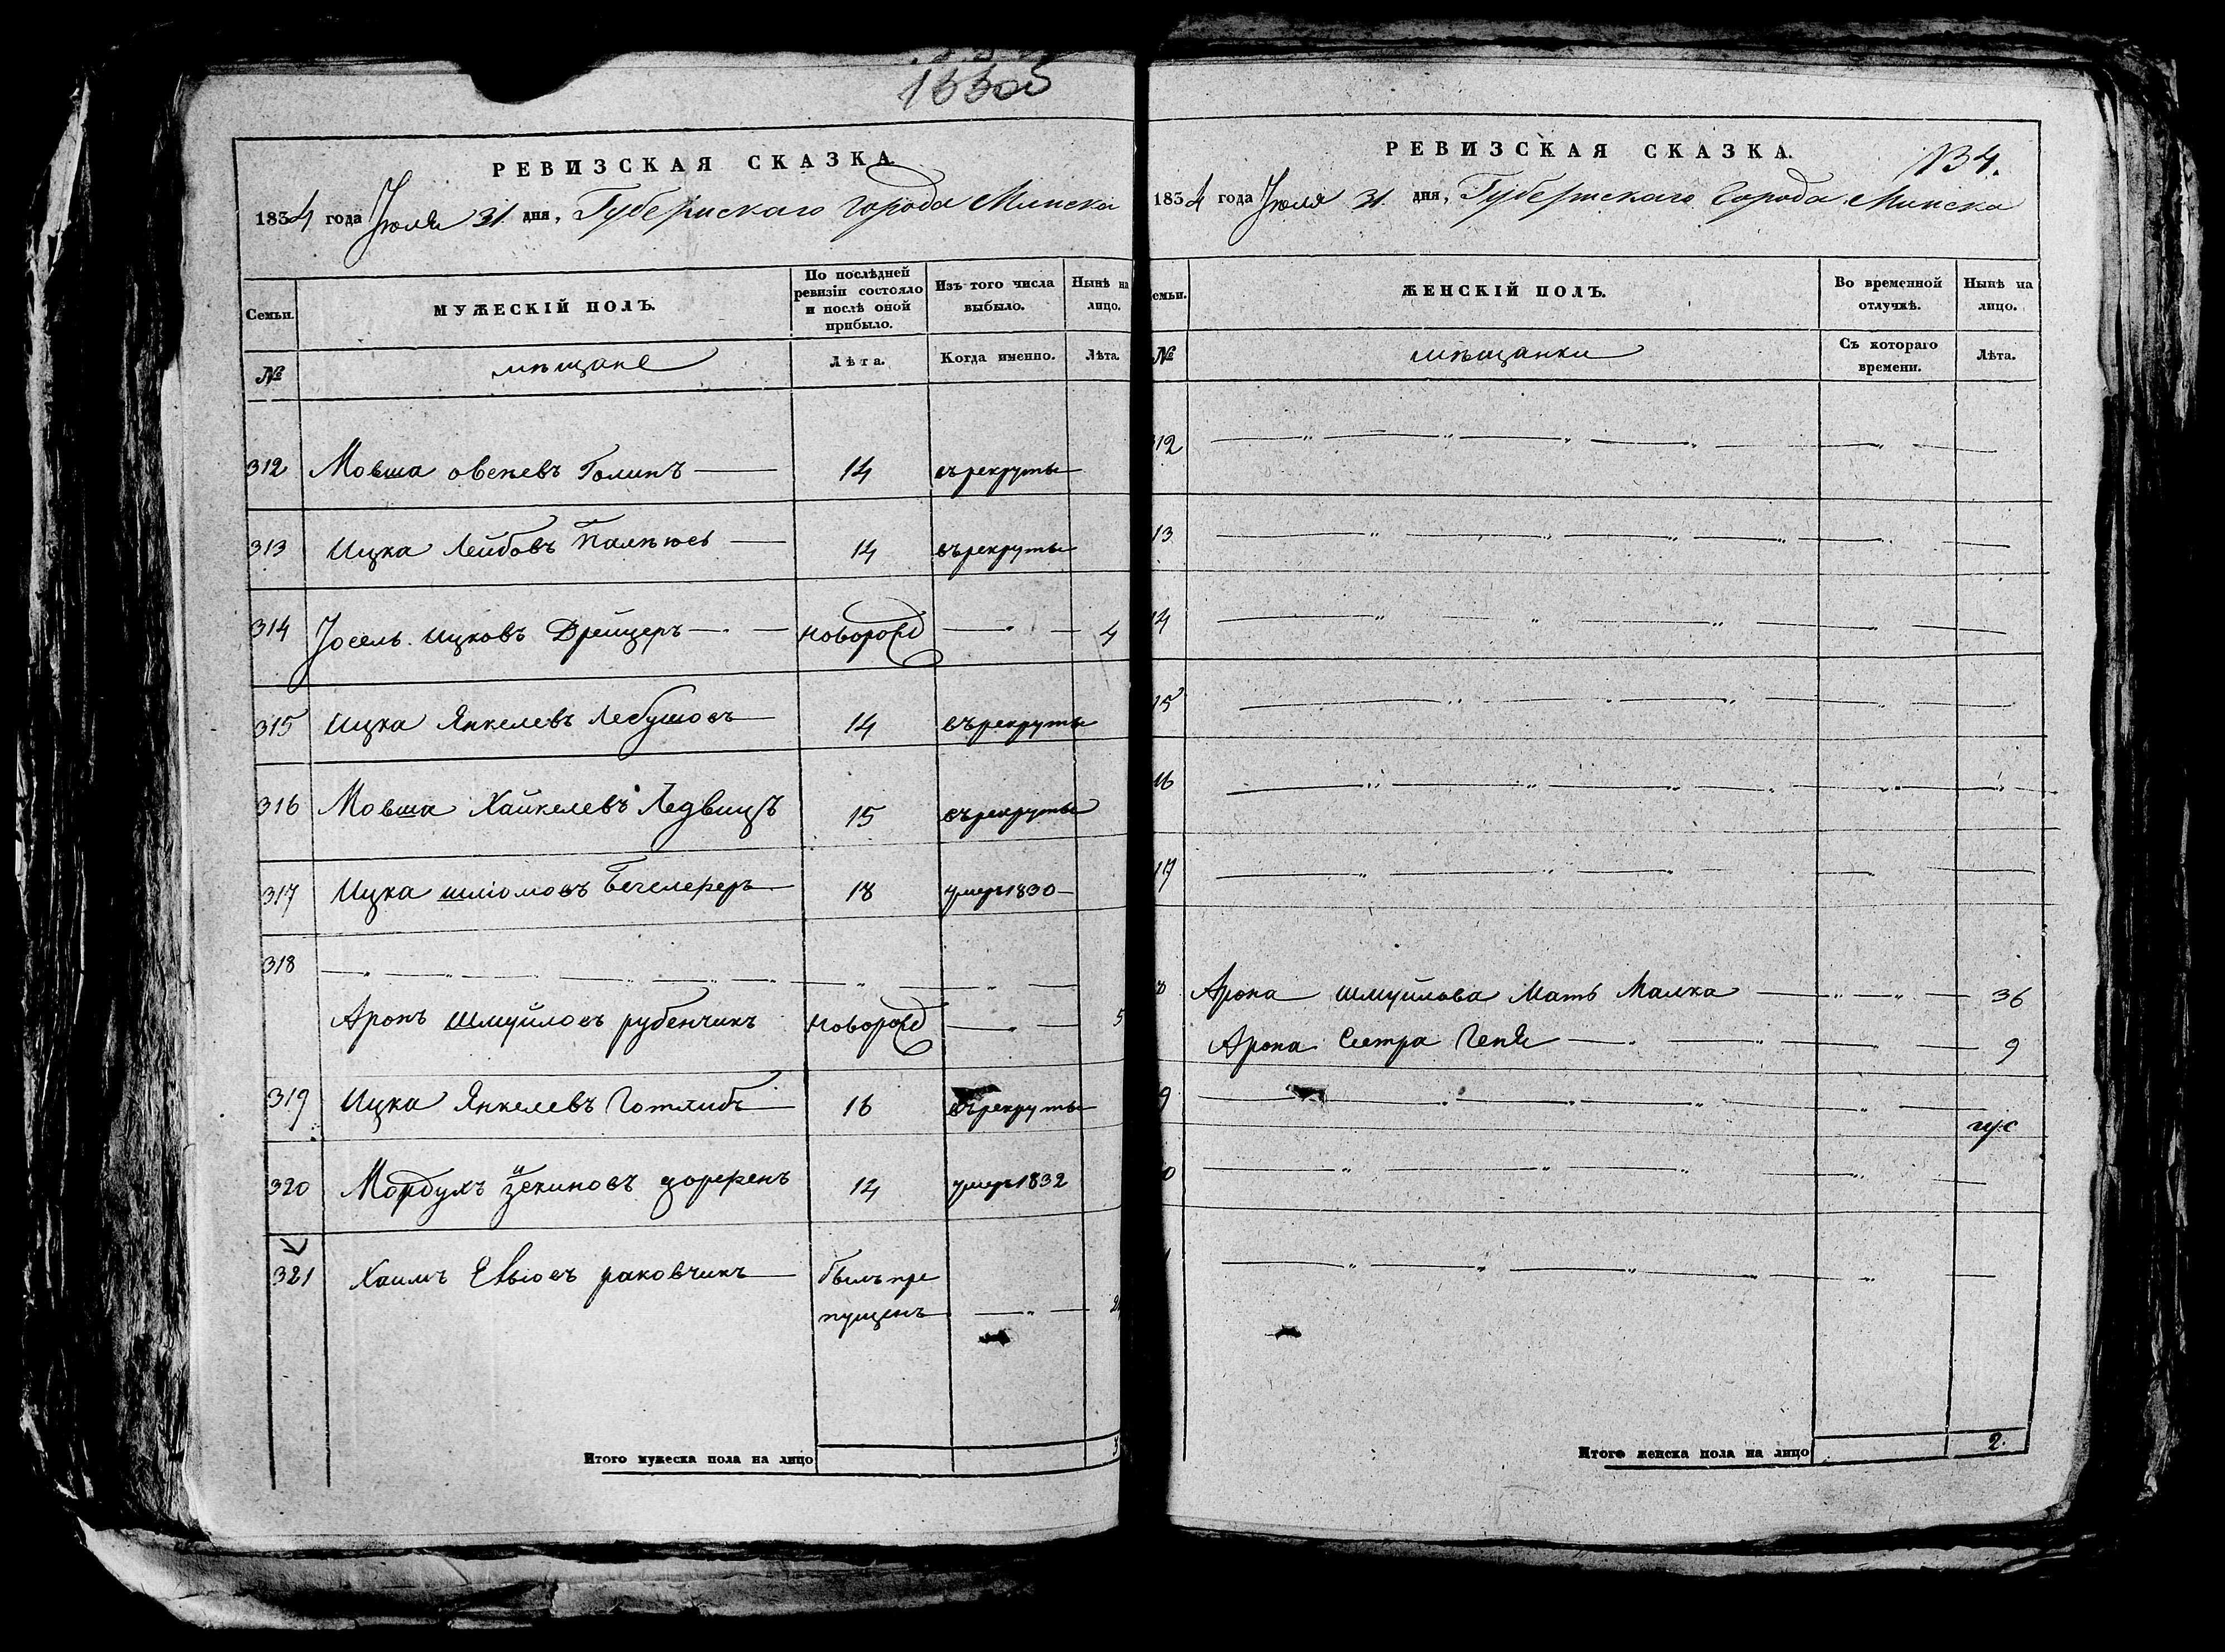 РЕВИЗСКАЯ СКАЗКА
1834 года Июля 31. дня, Губернскаго города Минска
Семьи.
МУЖЕСКІЙ ПОЛЪ.
По послѣдней ревизіи состояло и послѣ оной прибыло.
Изъ того числа выбыло.
Нынѣ на лицо.
№
мѣщане
Лѣта.
Когда именно.
Лѣта.
312 Мовша Голинъ 14 въ рекруты
313 Ицка Лейбовъ 14 въ рекруты
314 Іосель Ицковъ Дрейцеръ новорожд 4
315 Ицка Янкелевъ Лебушовъ 14 въ рекруты
316 Мовша Хайкелевъ 15 въ рекруты
317 Ицка Шліомовъ 18 умеръ 1830
318
Аронъ Шмуйловъ рубенчикъ новорожд 5
319 Ицка Янкелевъ Готлибъ 16 въ рекруты
320 14 умеръ 1832
321 Хаимъ раковчикъ былъ пре
пущенъ
Итого мужеска пола на лицо 3
РЕВИЗСКАЯ СКАЗКА.
134.
1834 года Июля 31. дня, Губернскаго Города Минска
семьи.
ЖЕНСКІЙ ПОЛЪ.
Во временной отлучкѣ.
Нынѣ на лицо.
№
мѣщанки
Съ котораго времени.
Лѣта.
12
13
14
15
16
17
8 Арона Шмуйлова Мать Малка 36
Арона Сестра Геня 9
9
0
Итого женска пола на лицо 2.